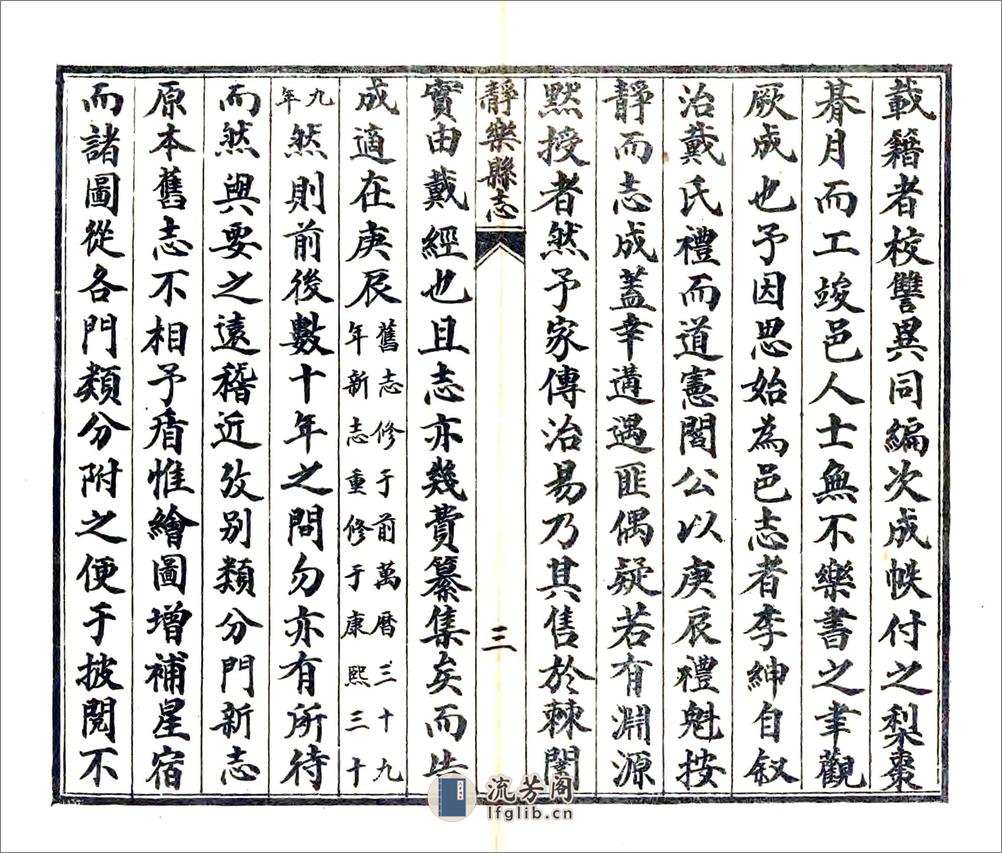 載籍者校讐異同編次成帙付之梨棗
朞月而工竣邑人士無不樂書之聿觀
厥成也予因思始為邑志者李紳自叙
治戴氏禮而道憲閻公以庚辰禮魁按
靜而志成蓋幸遘遇匪偶疑若有淵源
黙授者然予家傳治易乃其售於棘闈
靜樂縣志
三
實由戴經也且志亦幾費纂集矣而告
成適在庚辰舊志修于前萬曆三十九年新志重修于康熙三十
九年然則前後數十年之間勿亦有所待
而然與要之遠稽近攷别類分門新志
原本舊志不相予盾惟繪圖增補星宿
而諸圖從各門類分附之便于披閱不
流芳阁
lfglib.cn